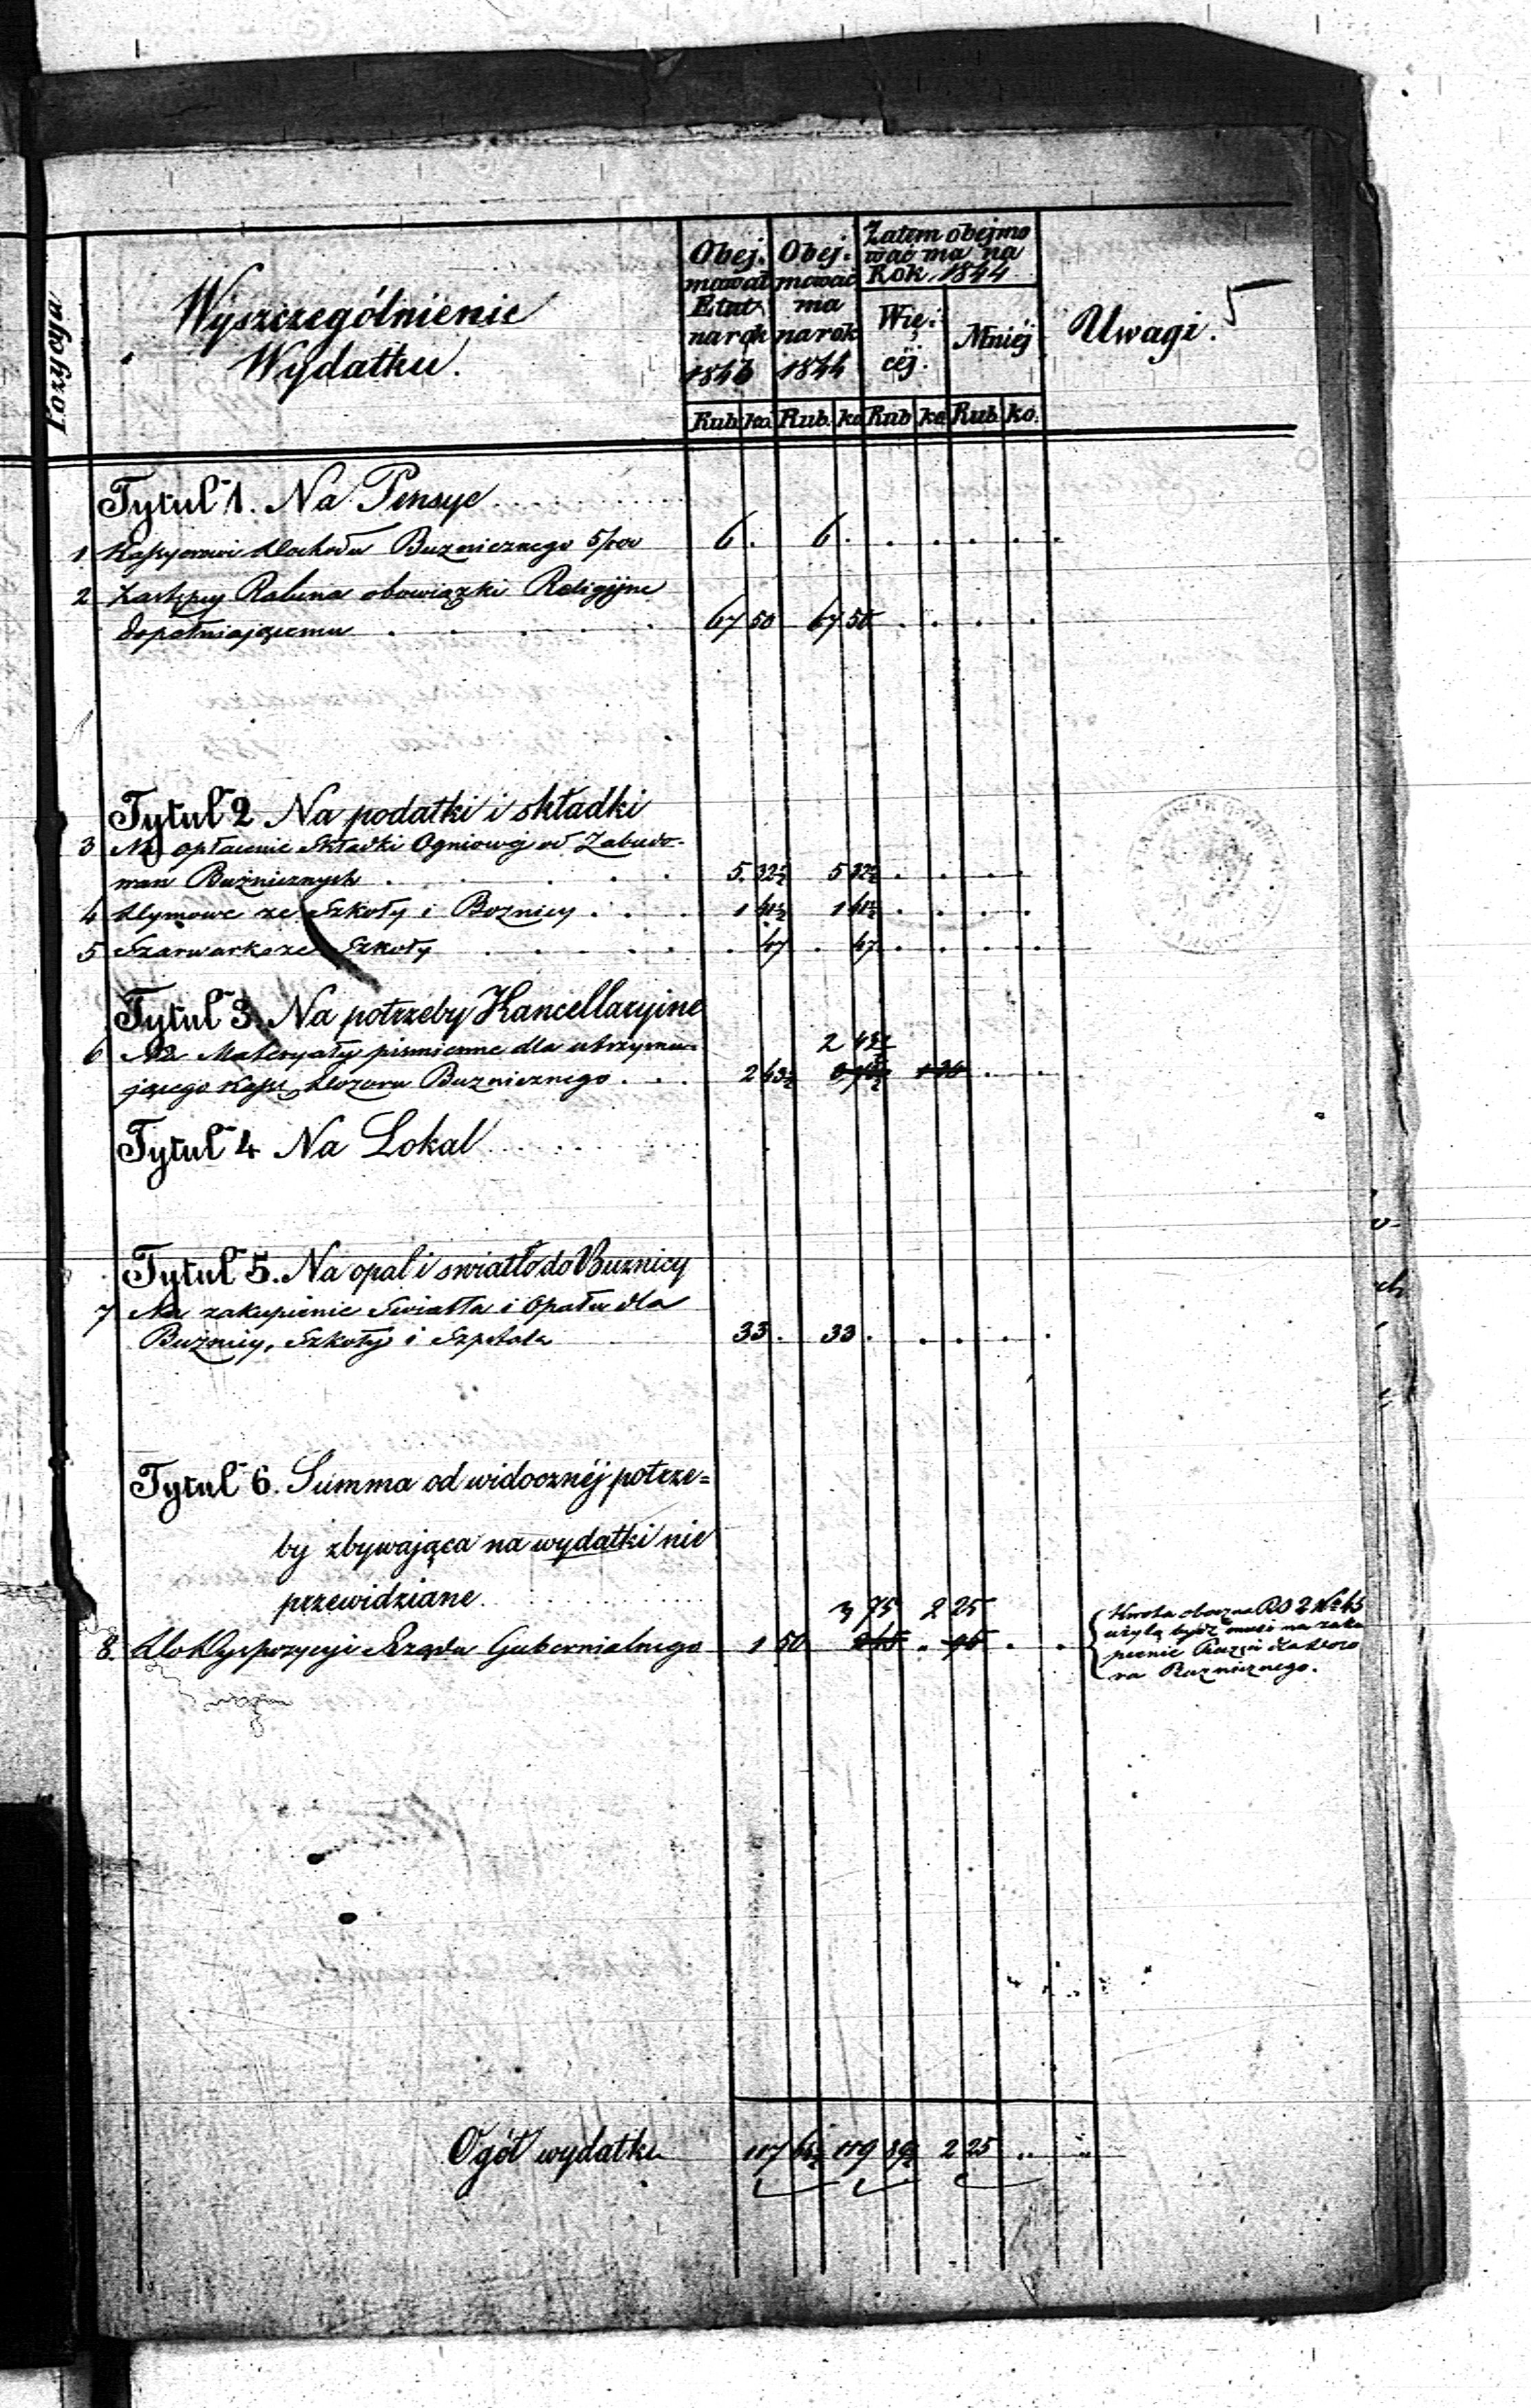 Pozycya
Wyszczególnienie
Wydatku.
Obej-
mował
Etat
na rok
1843
Obej-
mować
ma
na rok
1844
Zatem obejmo
wać ma na
Rok 1844
Wię-
céj.
Mniéj
Uwagi.
5
Rub. ko. Rub. ko. Rub. ko. Rub. ko.
Tytuł 1. Na Pensye
1 Kassyerowi dochodu Buzniczego 5/100 6 . 6 .
2 Zastępcy Rabina obowiązki Religijne
dopełniającemu 67 50 67 50
Tytuł 2 Na podatki i składki
3 Na opłacenie Składki Ogniowej od Zabudo-
wan Bużnicznych 5. 32½ 5 32½
4 Dymowe ze Szkoły i Boznicy 1 41½ 1 41½
5 Szarwark ze Szkoły . 47 . 47
Tytuł 3. Na potrzeby Kancellaryine
6 Na Materyały pismienne dla utrzymu- 2 43½
jącego Kassę Dozoru Buznicznego 2 43½
Tytuł 4 Na Lokal
Tytuł 5. Na opal i swiatło do Buznicy
7 Na zakupienie Swiatła i Opału dla
Buznicy, Szkoły i Szpitala 33 . 33 .
Tytuł 6. Summa od widocznéj potrze-
by zbywająca na wydatki nie
przewidziane 3 75 2 25
8. Do Dyspozycyi Rządu Gubernialnego 1 50
Kwota oboczna RS 2 k 25
użytą bydź musi na zaku
pienie dla Dozo
ru Buznicznego.
Ogół wydatku 117 64½ 119 89½ 2 25